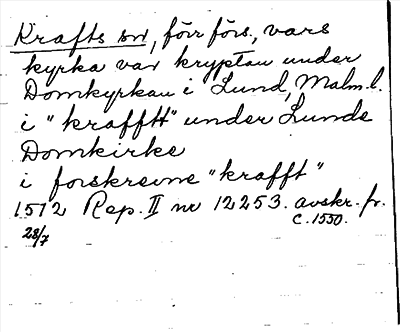 Krafts sn, förr förs., vars
kyrka var kryptan under
Domkyrkan i Lund, Malm.l.
i "kraffth" under Lunde
Domkirke
i forskrevne "krafft"
1512 Rep. II nr 12253. avskr. fr.
28/7 c. 1550.